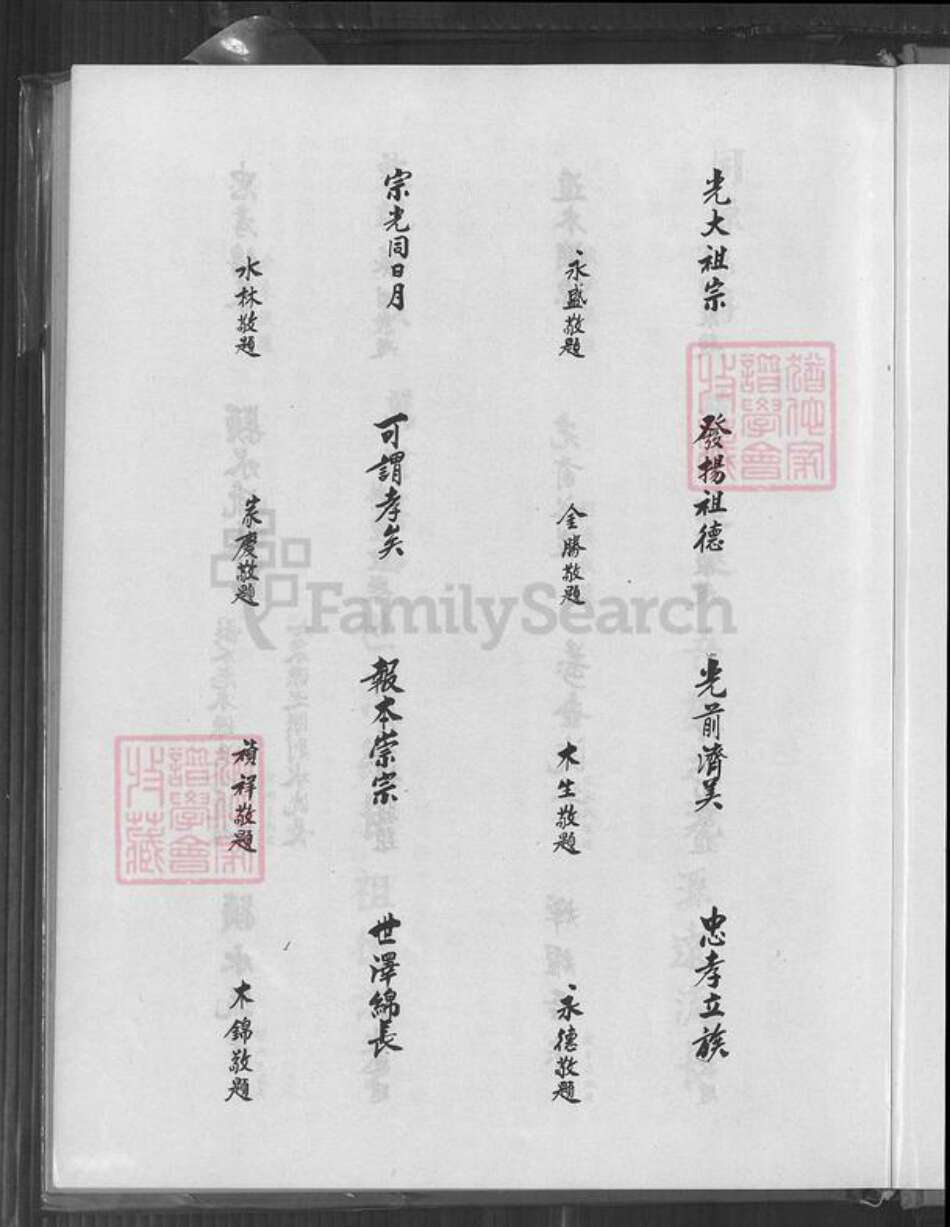 光大祖宗
永盛敬題
發揚祖德
金勝敬題
光前濟美
木生敬題
忠孝立族
永德敬題
宗光同日月
水林敬題
可謂孝矣
家慶敬題
報本崇宗
禎祥敬題
世澤綿長
木錦敬題
譜學會
收藏
譜學會
收藏
FamilySearch